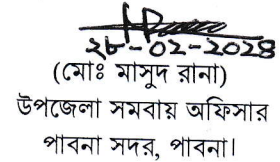 ২৮-০২-২০২৪
(মোঃ মাসুদ রানা)
উপজেলা সমবায় অফিসার
পাবনা সদর, পাবনা।